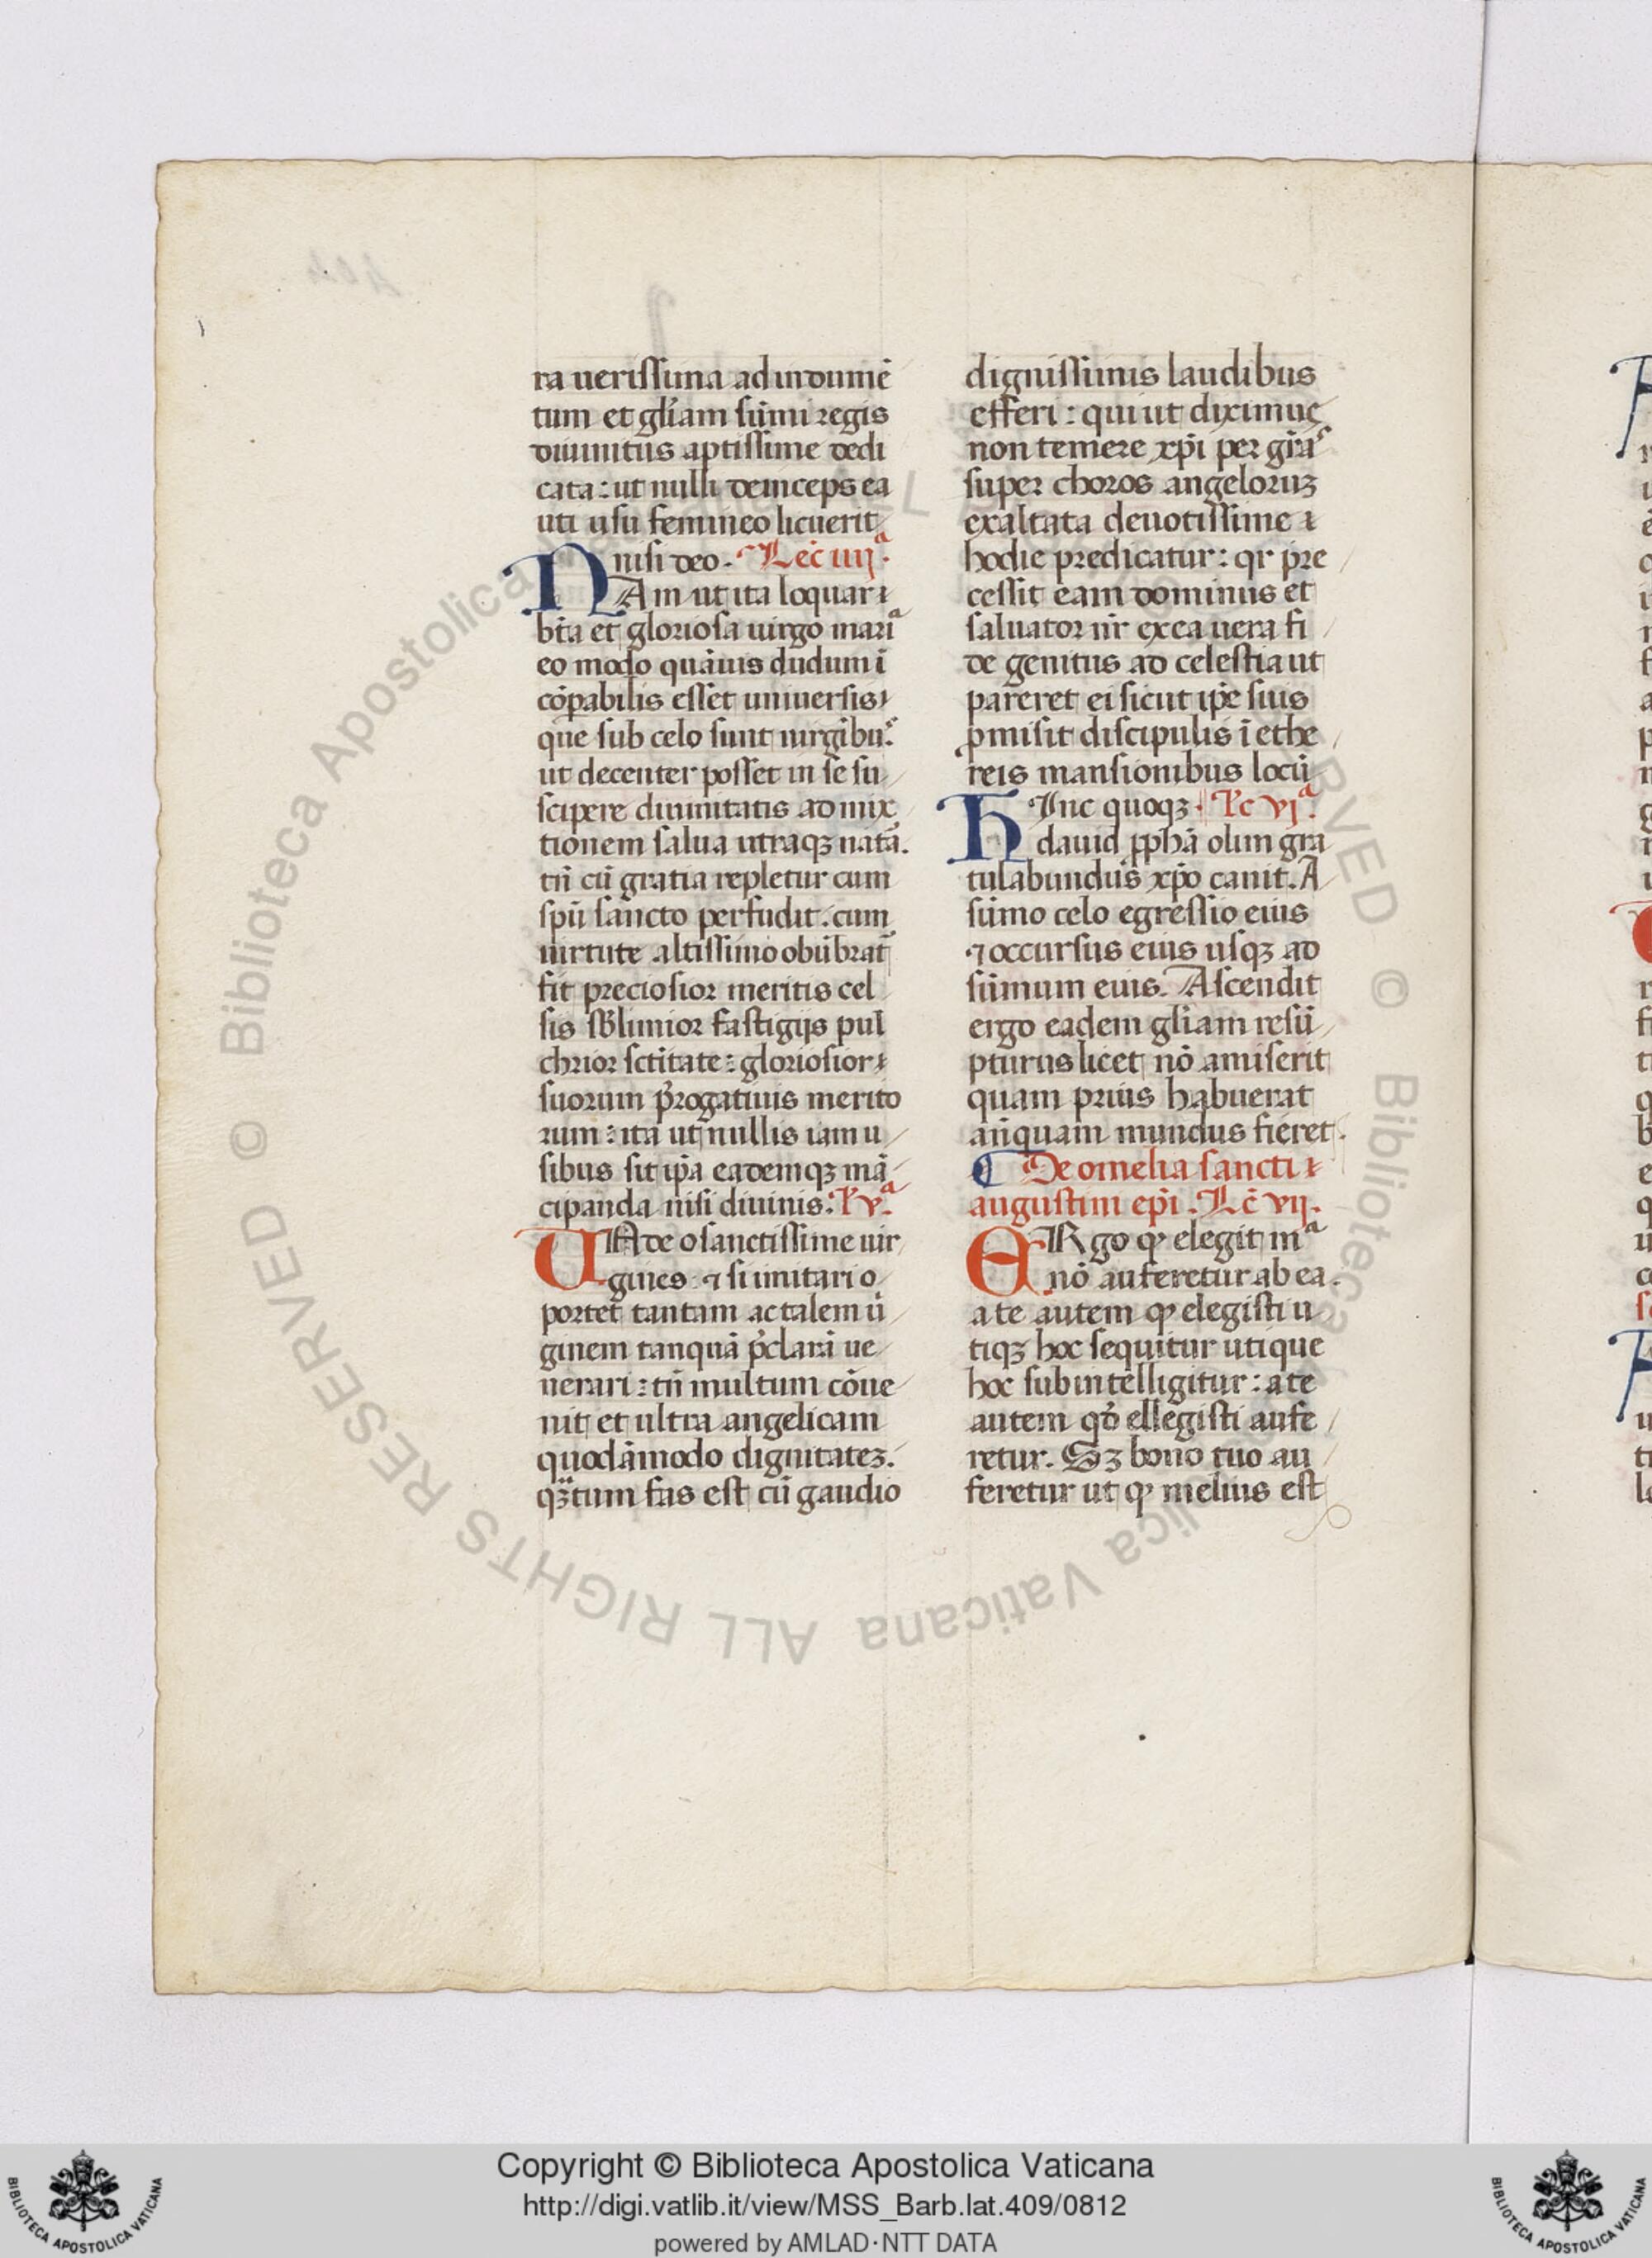 ra uerissima ad indumē
tum et gl̄iam sūmi regis
diuinitus aptissime dedi
cata: ut nulli deinceps ea
uti usu femineo licuerit
nisi deo. Lec̄ iiijª.
NAm ut ita loquar
bt̄a et gloriosa uirgo mariª
eo modo quāuis dudum ī
cōpabilis esset uniuersis
que sub celo sunt uirgibu᷒:
ut decenter posset in se su
scipere diuinitatis admix
tionem salua utraqꝫ natā.
tn̄ cū gratia repletur cum
spū sancto perfudit: cum
uirtute altissimo obūbrat̄
fit preciosior meritis cel
sis sb̄limior fastigijs pul
chrior sctītate: gloriosior
suorum p̄rogatiuis merito
rum: ita ut nullis iam u
sibus sit ip̄a eademqꝫ mā
cipanda nisi diuinis. L̄ vª.
UAde o sanctissime uir
gines ⁊ si imitari o
portet tantam ac talem ū
ginem tanquā p̄clarā ue
nerari: tn̄ multum cōue
nit et ultra angelicam
quodāmodo dignitateꝫ.
qꝫtum fas est cū gaudio
dignissimis laudibus
efferi: qui ut diximus
non temere xp̄i per grā᷒
super choros angeloruꝫ
exaltata deuotissime
hodie predicatur: qr pre
cessit eam dominus et
saluator nr̄ ex ea uera fi
de genitus ad celestia ut
pareret ei sicut ip̄e suis
ꝓmisit discipulis ī ethe
reis mansionibus locū
HInc quoqꝫ L̄c vjª.
dauid ꝓph̄a olim gra
tulabundus xp̄o canit. A
sūmo celo egressio eius
⁊ occursus eius usqꝫ ad
sūmum euis. Ascendit
ergo eadem gl̄iam resū
pturus licet nō amiserit
quam prius habuerat
an̄quam mundus fieret.
De omelia sancti
augustini ep̄i. Lc̄ vij.
ERgo ꝙ elegit mª
nō auferetur ab ea.
a te autem ꝙ elegisti u
tiqꝫ hoc sequitur utique
hoc subintelligitur: a te
autem qd̄ ellegisti aufe
retur. Sꝫ bono tuo au
feretur ut ꝙ melius est
Copyright © Biblioteca Apostolica Vaticana
http://digi.vatlib.it/view/MSS_Barb.lat.409/0812
powered by AMLAD·NTT DATA
BIBLIOTECA APOSTOLICA VATICANA
BIBLIOTECA APOSTOLICA VATICANA
© Biblioteca Apostolica Vaticana ALL RIGHTS RESERVED
© Biblioteca Apostolica Vaticana ALL RIGHTS RESERVED